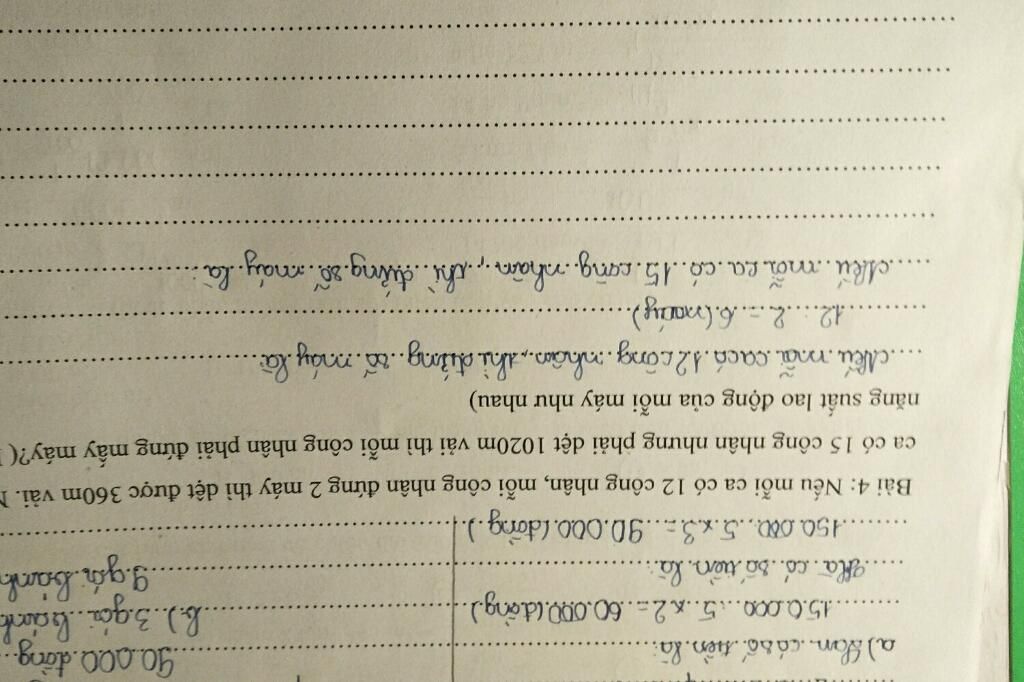 a) Lan có số tiền là:
90.000 đồng
150.000 : 5 x 2 = 60.000 (đồng)
b) 3 gói bánh
Hà có số tiền là:
9 gói bánh
150.000 : 5 x 3 = 90.000 (đồng)
Bài 4: Nếu mỗi ca có 12 công nhân, mỗi công nhân đứng 2 máy thì dệt được 360m vải. N
ca có 15 công nhân nhưng phải dệt 1020m vải thì mỗi công nhân phải đứng mấy máy?(
năng suất lao động của mỗi máy như nhau)
Nếu mỗi ca có 12 công nhân, thì đứng số máy là
12 : 2 = 6 (máy)
Nếu mỗi ca có 15 công nhân, thì đứng số máy là: